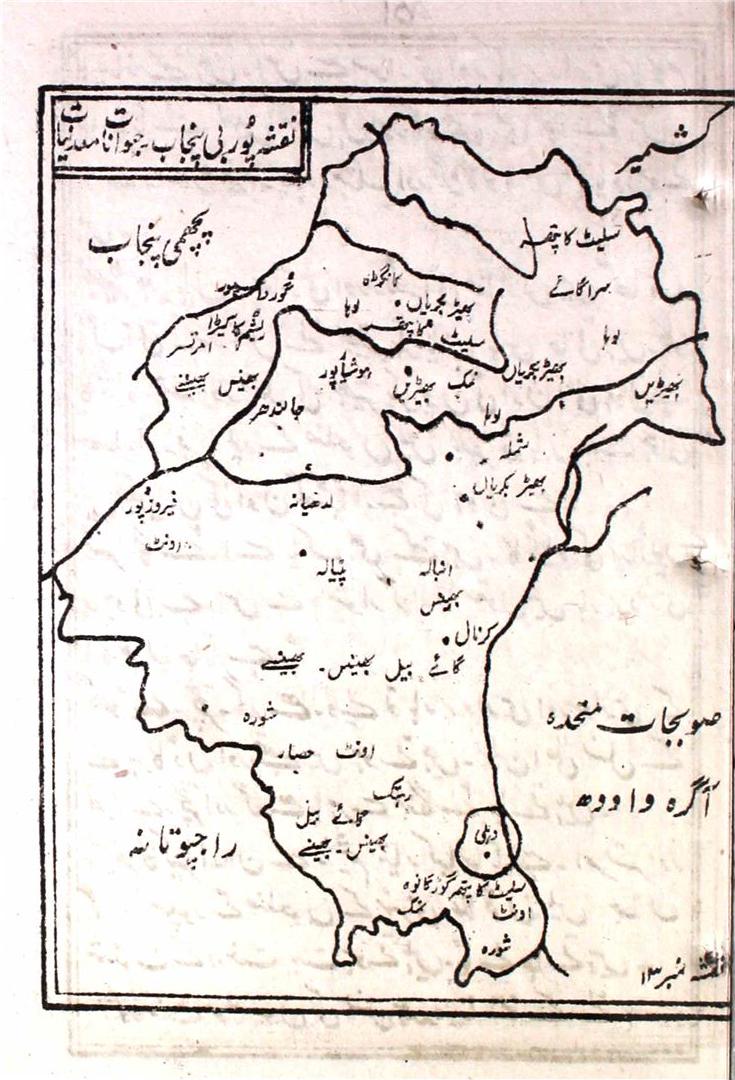 نقشہ پوربی پنجاب - حیوانات معدنیات
کشمیر
پچھمی پنجاب
سلیٹ کا پتھر
سراگائے
لوہا
کانگڑہ
بھیڑ بکریاں
لوہا
سلیٹ کا پتھر
گورداسپور
ریشم کا کیڑا
امرتسر
بھینس بھینسے
ہوشیارپور
جالندھر
بھیڑیں
نمک
بھیڑ بکریاں
لوہا
بھیڑیں
شملہ
بھیڑ بکریاں
لدھیانہ
فیروزپور
اونٹ
پٹیالہ
انبالہ
بھینس
کرنال
گائے بیل بھینس - بھینسے
شورہ
اونٹ حصار
صوبجات متحدہ
آگرہ و اودھ
رہتک
گائے بیل
بھینس - بھینسے
دہلی
راجپوتانہ
سلیٹ کا پتھر گوڑگانوہ
نمک
اونٹ
شورہ
نقشہ نمبر ۱۳